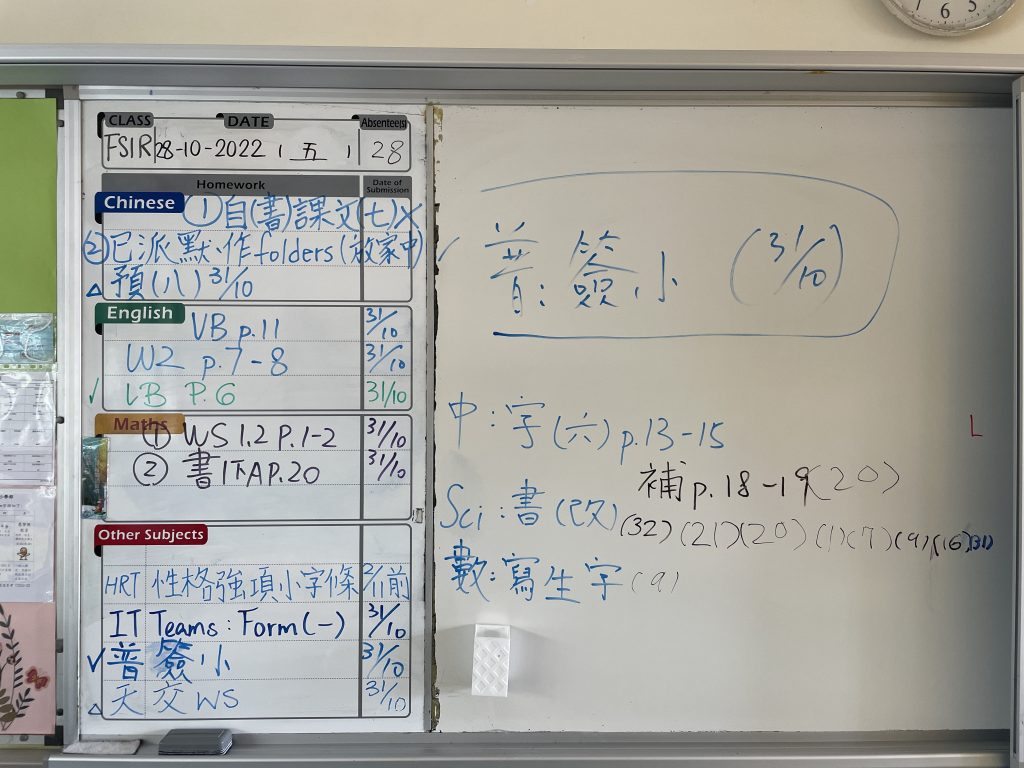 7 6 5
CLASS DATE Absentee(s)
28-10-2022 (五) 28
Homework Date of Submission
Chinese ① 自(書)課文(七)
② 已派默、作folders(放家中)
△ 預(八) 31/10
English VB p.11 31/10
W2 p.7-8 31/10
✓ LB P.6 31/10
Maths ① WS 1.2 P.1-2 31/10
② 書1下A P.20 31/10
Other Subjects
HRT 性格強項小字條 2/11前
IT Teams: Form(一) 31/10
✓ 普 簽小 31/10
△ 天 交WS 31/10
普: 簽小 (31/10)
中: 字(六) p.13-15
補p.18-19 (20)
Sci: 書(改) (32) (21) (20) (1) (7) (9) (16) (31)
數: 寫生字 (9)
L